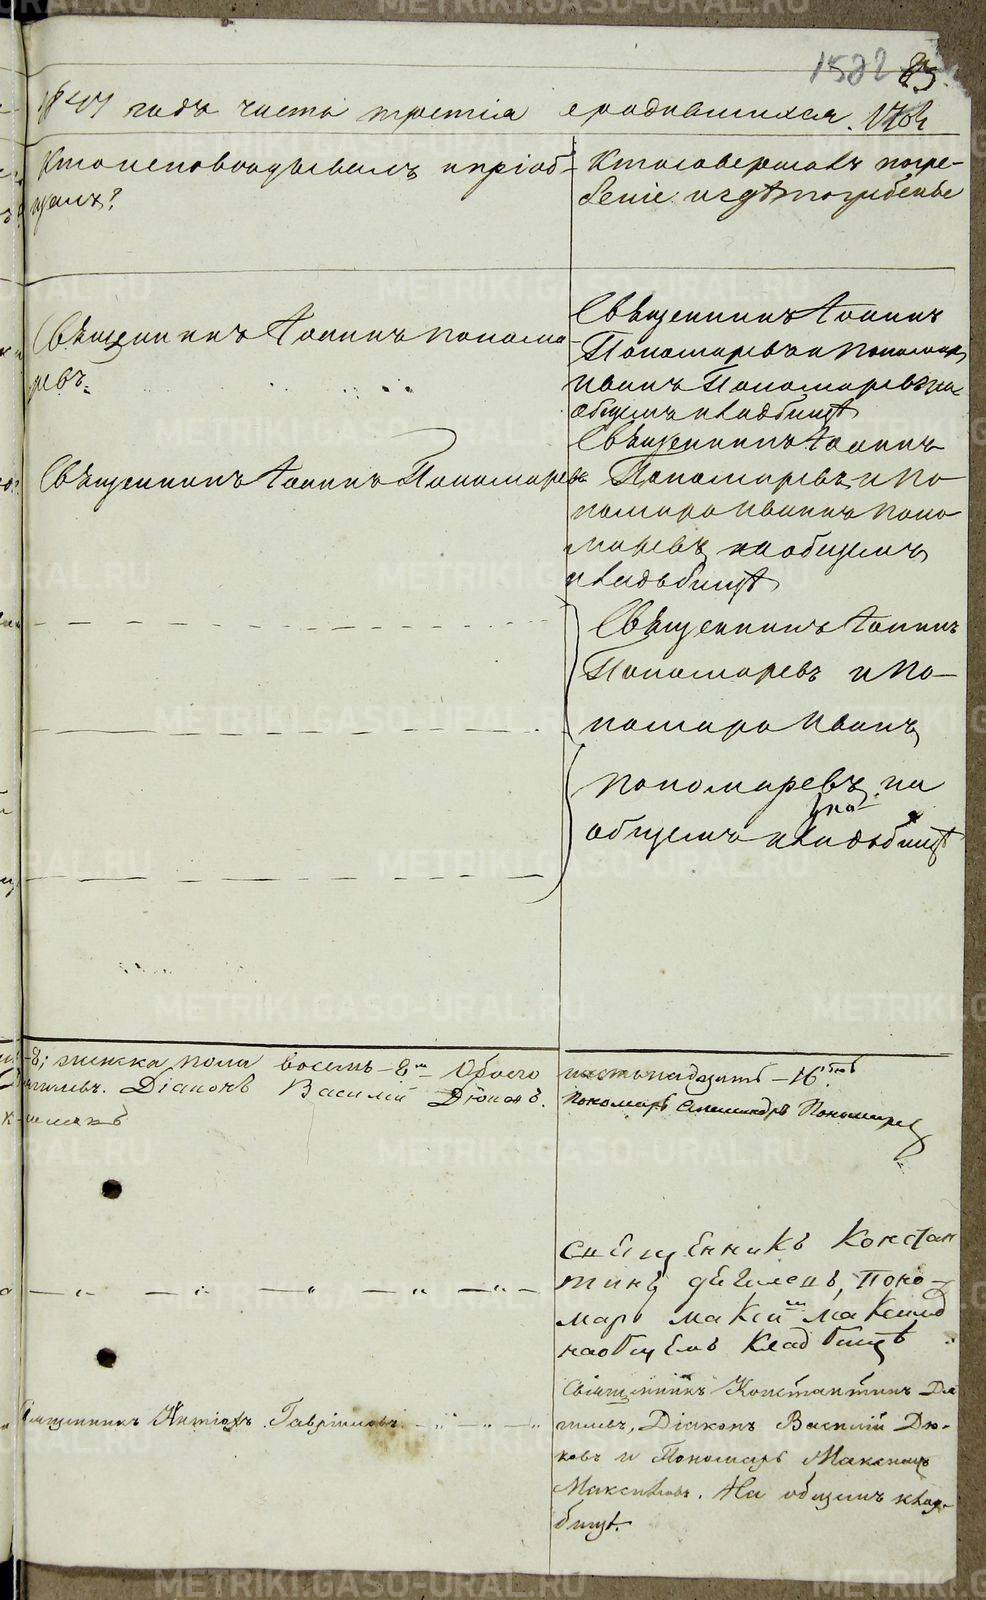 1522 85
1847 года часть третія о родившихся. 176
Кто исповѣдывалъ и пріоб-
щалъ?
Кто совершалъ погре-
беніе и гдѣ погребены
Священникъ Іоаннъ Понома-
ревъ.
Священникъ Іоаннъ
Пономаревъ и Пономарь
Иванъ Пономаревъ на
общемъ кладбищѣ
Священникъ Іоаннъ Пономаревъ
Священникъ Іоаннъ
Пономаревъ и По-
номарь Иванъ Поно-
маревъ на общемъ
кладьбищѣ
Священникъ Іоаннъ
Пономаревъ и По-
номарь Иванъ
Пономаревъ на
общемъ кладьбищѣ
-8; женска пола восемь-8 Обоего
Діаконъ Василій Дюковъ.
шестьнадцать-16.
Пономарь Александръ Пономаревъ
Священникъ Констан
тинъ Дягилевъ, Поно-
марь Максимъ Максимо
на общемъ Кладбищѣ
Священникъ Гавріиловъ
Священникъ Константинъ Дя
гилевъ, Діаконъ Василій Дю-
ковъ и Пономарь Максимъ
Максимовъ. На общемъ клад-
бищѣ.
METRIKI.GASO-URAL.RU